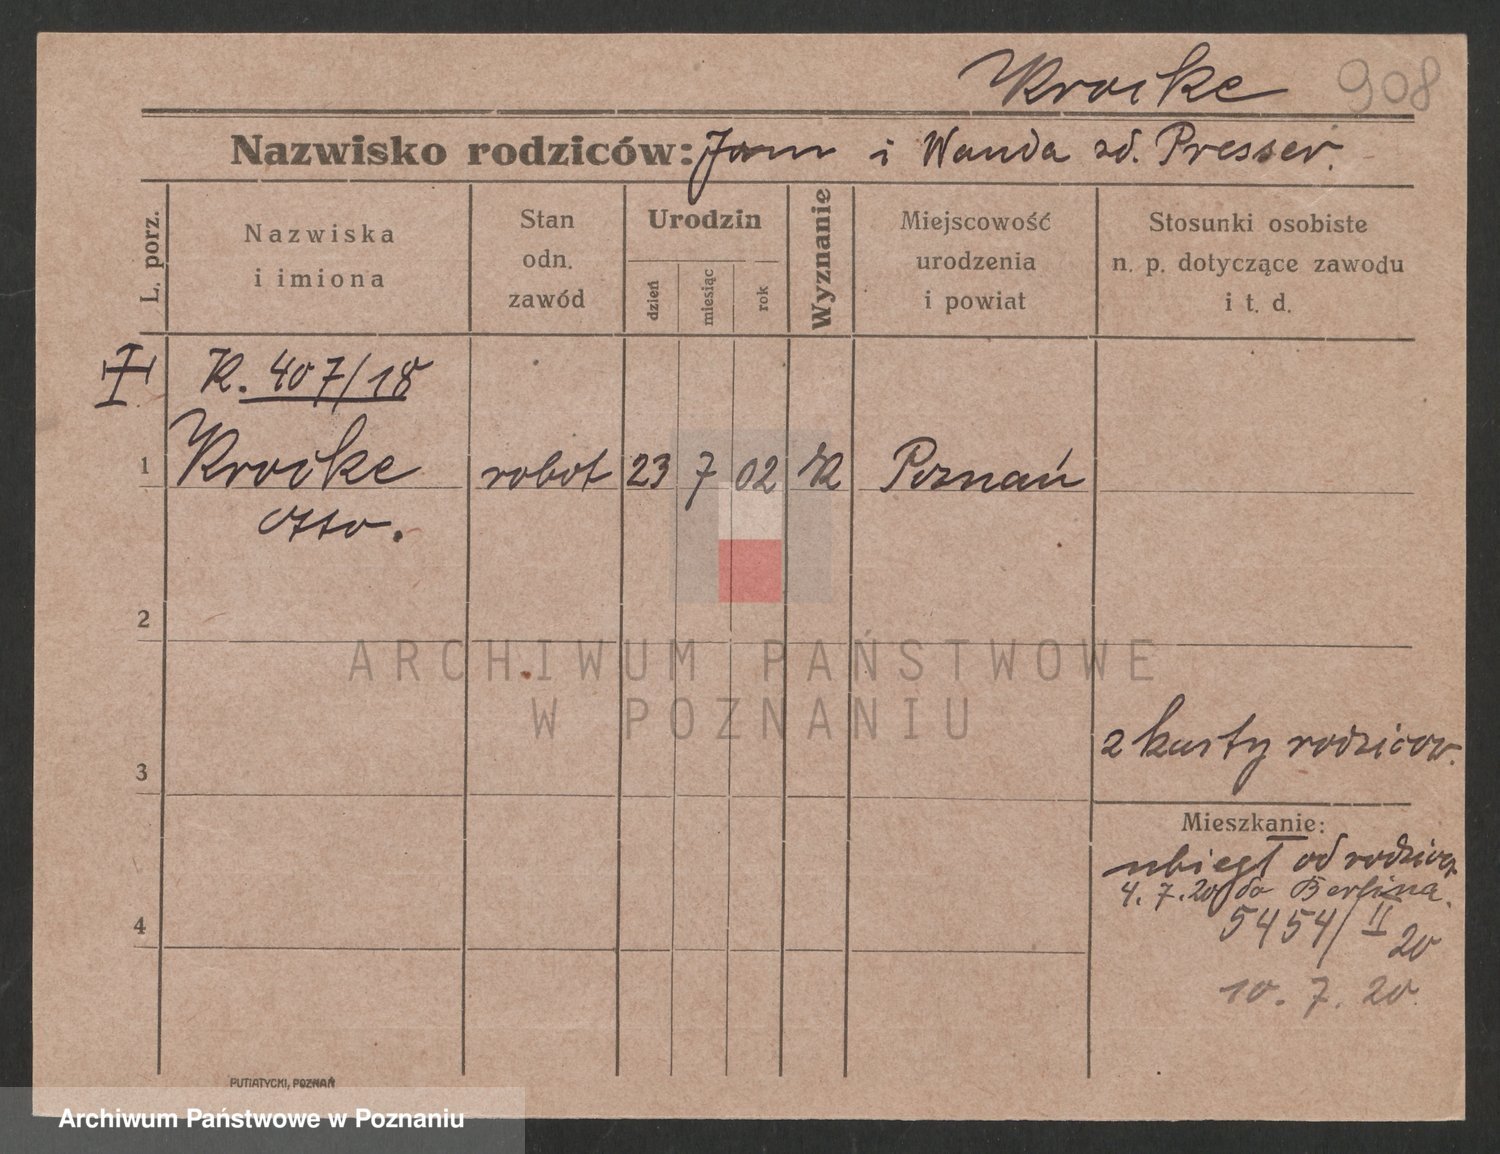 Krocke 908
Nazwisko rodziców: Jan i Wanda zd. Presser.
L. porz.
Nazwiska
i imiona
Stan
odn.
zawód
Urodzin
dzień
miesiąc
rok
Wyznanie
Miejscowość
urodzenia
i powiat
Stosunki osobiste
n. p. dotyczące zawodu
i t. d.
K. 407/18
1 Krocke robot 23 7 02 K Poznań
Otto.
2
ARCHIWUM PAŃSTWOWE
W POZNANIU
z karty rodziców.
3
Mieszkanie:
ubiegł od rodziców
4. 7. 20 do Berlina.
5454/II 20
4
10. 7. 20.
PUTIATYCKI, POZNAŃ
Archiwum Państwowe w Poznaniu